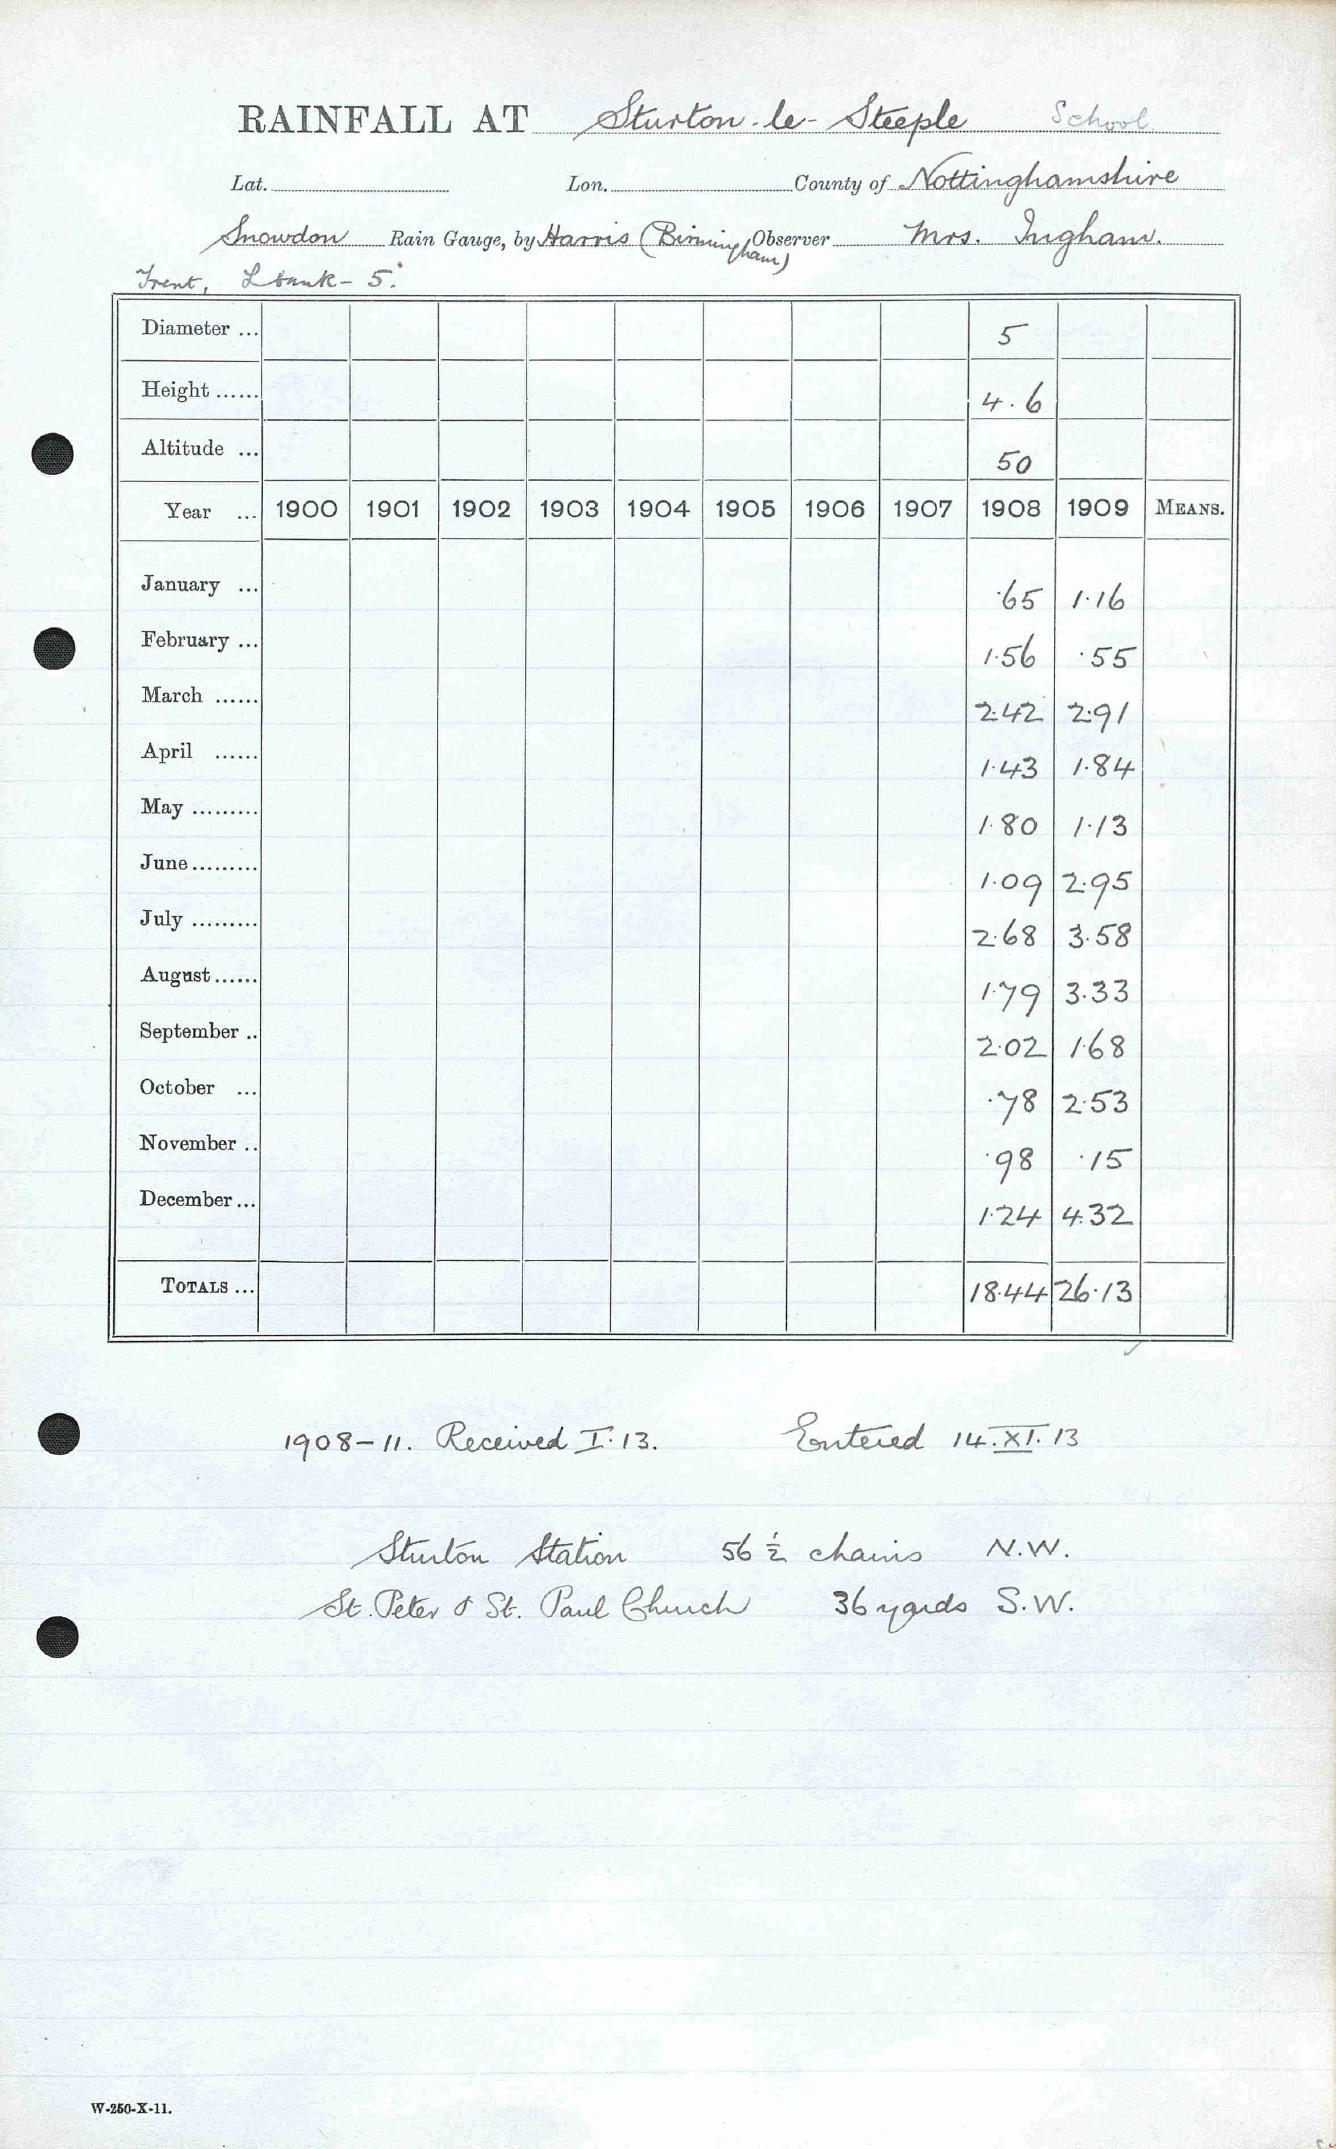 RAINFALL AT Sturton-le-Steeple School
Lat. Lon. County of Nottinghamshire
Snowdon Rain Gauge, by Harris (Birmingham) Observer Mrs. Ingham.
Trent, L bank - 5.
Diameter ... 5
Height ...... 4.6
Altitude ... 50
Year ... 1900 1901 1902 1903 1904 1905 1906 1907 1908 1909 MEANS.
January ... ·65 1·16
February ... 1·56 ·55
March ...... 2·42 2·91
April ...... 1·43 1·84
May ......... 1·80 1·13
June ......... 1·09 2·95
July ......... 2·68 3·58
August ...... 1·79 3·33
September .. 2·02 1·68
October ... ·78 2·53
November .. ·98 ·15
December ... 1·24 4·32
TOTALS ... 18·44 26·13
1908-11. Received I·13. Entered 14.XI.13
Sturton Station 56 ½ chains N.W.
St. Peter & St. Paul Church 36 yards S.W.
W-250-X-11.